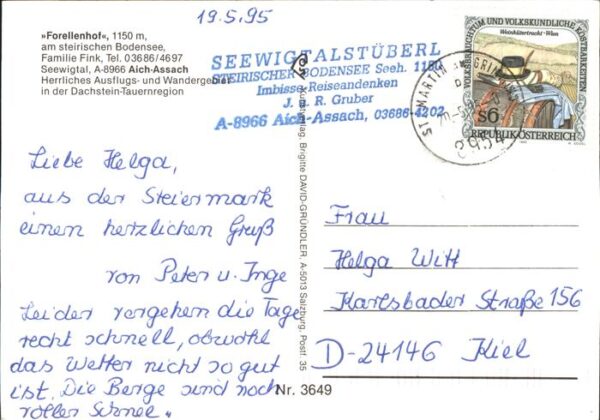 19.5.95
»Forellenhof«, 1150 m,
am steirischen Bodensee,
Familie Fink, Tel. 03686/4697
Seewigtal, A-8966 Aich-Assach
Herrliches Ausflugs- und Wandergebiet
in der Dachstein-Tauernregion
SEEWIGTALSTÜBERL
STEIRISCHER BODENSEE Seeh. 1150
Imbisse-Reiseandenken
J. u. R. Gruber
A-8966 Aich-Assach, 03686-4202
VOLKSBRAUCHTUM UND VOLKSKUNDLICHE KOSTBARKEITEN
Weinhütertracht - Wien
S6
REPUBLIK ÖSTERREICH
ST. MARTIN AM GRIMMING
8954
Liebe Helga,
aus der Steiermark
einen herzlichen Gruß
von Peter u. Inge
Leider vergehen die Tage
recht schnell, obwohl
das Wetter nicht so gut
ist. Die Berge sind noch
voller Schnee.
Kunstverlag, Brigitte DAVID-GRÜNDLER, A-5013 Salzburg, Postf. 35
Frau
Helga Witt
Karlsbader Straße 156
D-24146 Kiel
Nr. 3649